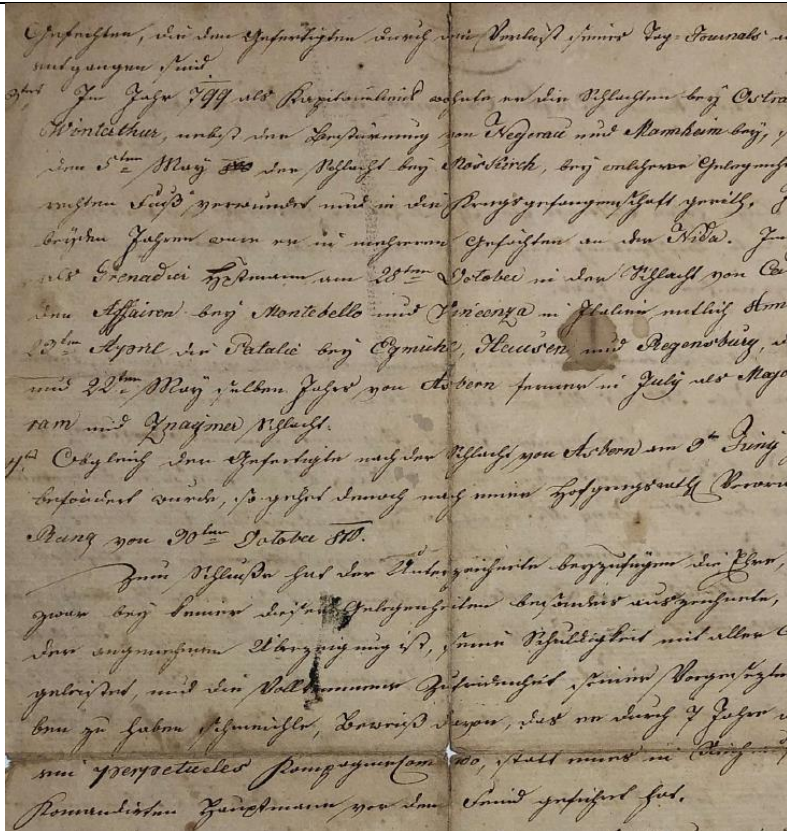 Gefechten, die den Gefertigten durch den Verlust seines Tag-Journals
entgangen sind
3tens Im Jahr 799 als Kapitainlieut wohnte er die Schlachten bey Ostra
Winterthur, nebst der Bestürmung von Negerau und Mannheim bey,
den 5ten May 800 der Schlacht bey Möskirch, bey welcher Gelegenhe
rechten Fuß verwundet und in die Kriegsgefangenschaft gerith,
beyden Jahren ware er in mehreren Gefechten an der Nida. Im
als Grenadier Hptmann am 28ten October in der Schlacht von Ca
den Affairen bey Montebello und Vincenza in Italien endlich Ann
23ten April die Batalie bey Egmühl, Hausen und Regensburg, d
und 22ten May selben Jahrs von Asbern ferner in July als Majo
ram und Znaymer Schlacht.
4tens Obgleich der Gefertigte nach der Schlacht von Asbern am 9ten Juny
befördert wurde, so gehet denoch nach einer Hofkriegsräthl Verord
Rang von 30ten October 810.
Zum Schluße hat der Unterzeichnete beyzufügen die Ehre,
zwar bey keiner diesen Gelegenheiten besonders auszeichnete,
der angenehmen Überzeigung ist, seine Schuldigkeit mit aller
geleistet, und die Vollkommene Zufridenheit seiner Vorgesezten
ben zu haben schmeichle, Beweiß davon, das er durch 7 Jahre
ein perpetueles Kompagnie Com wo, statt eines in
Komandirten Hauptmann vor dem Feind geführt hat.